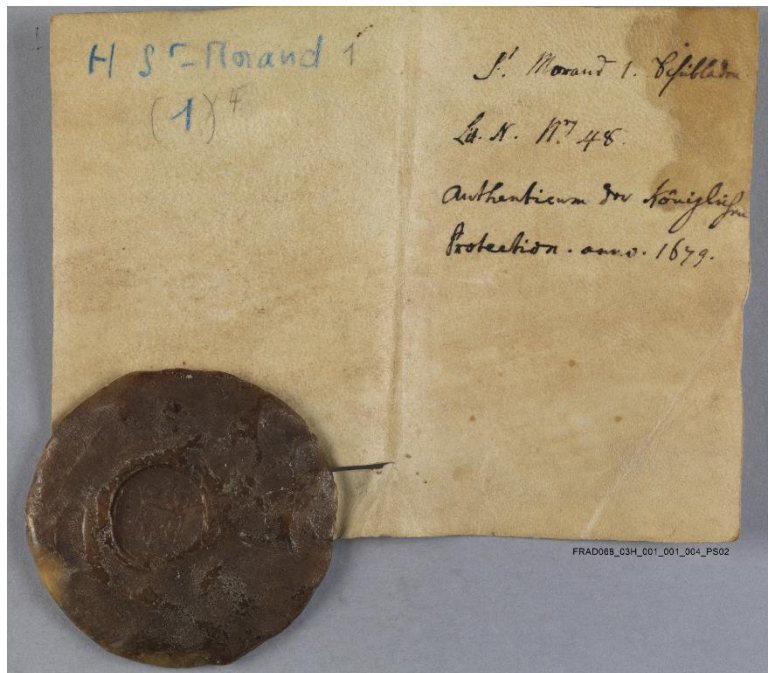 H St-Morand 1
(1) 4
St. Morand 1. Schublade
La. N. No 48.
Authenticum der Königlichen
Protection. anno. 1679.
FRAD068_03H_001_001_004_PS02